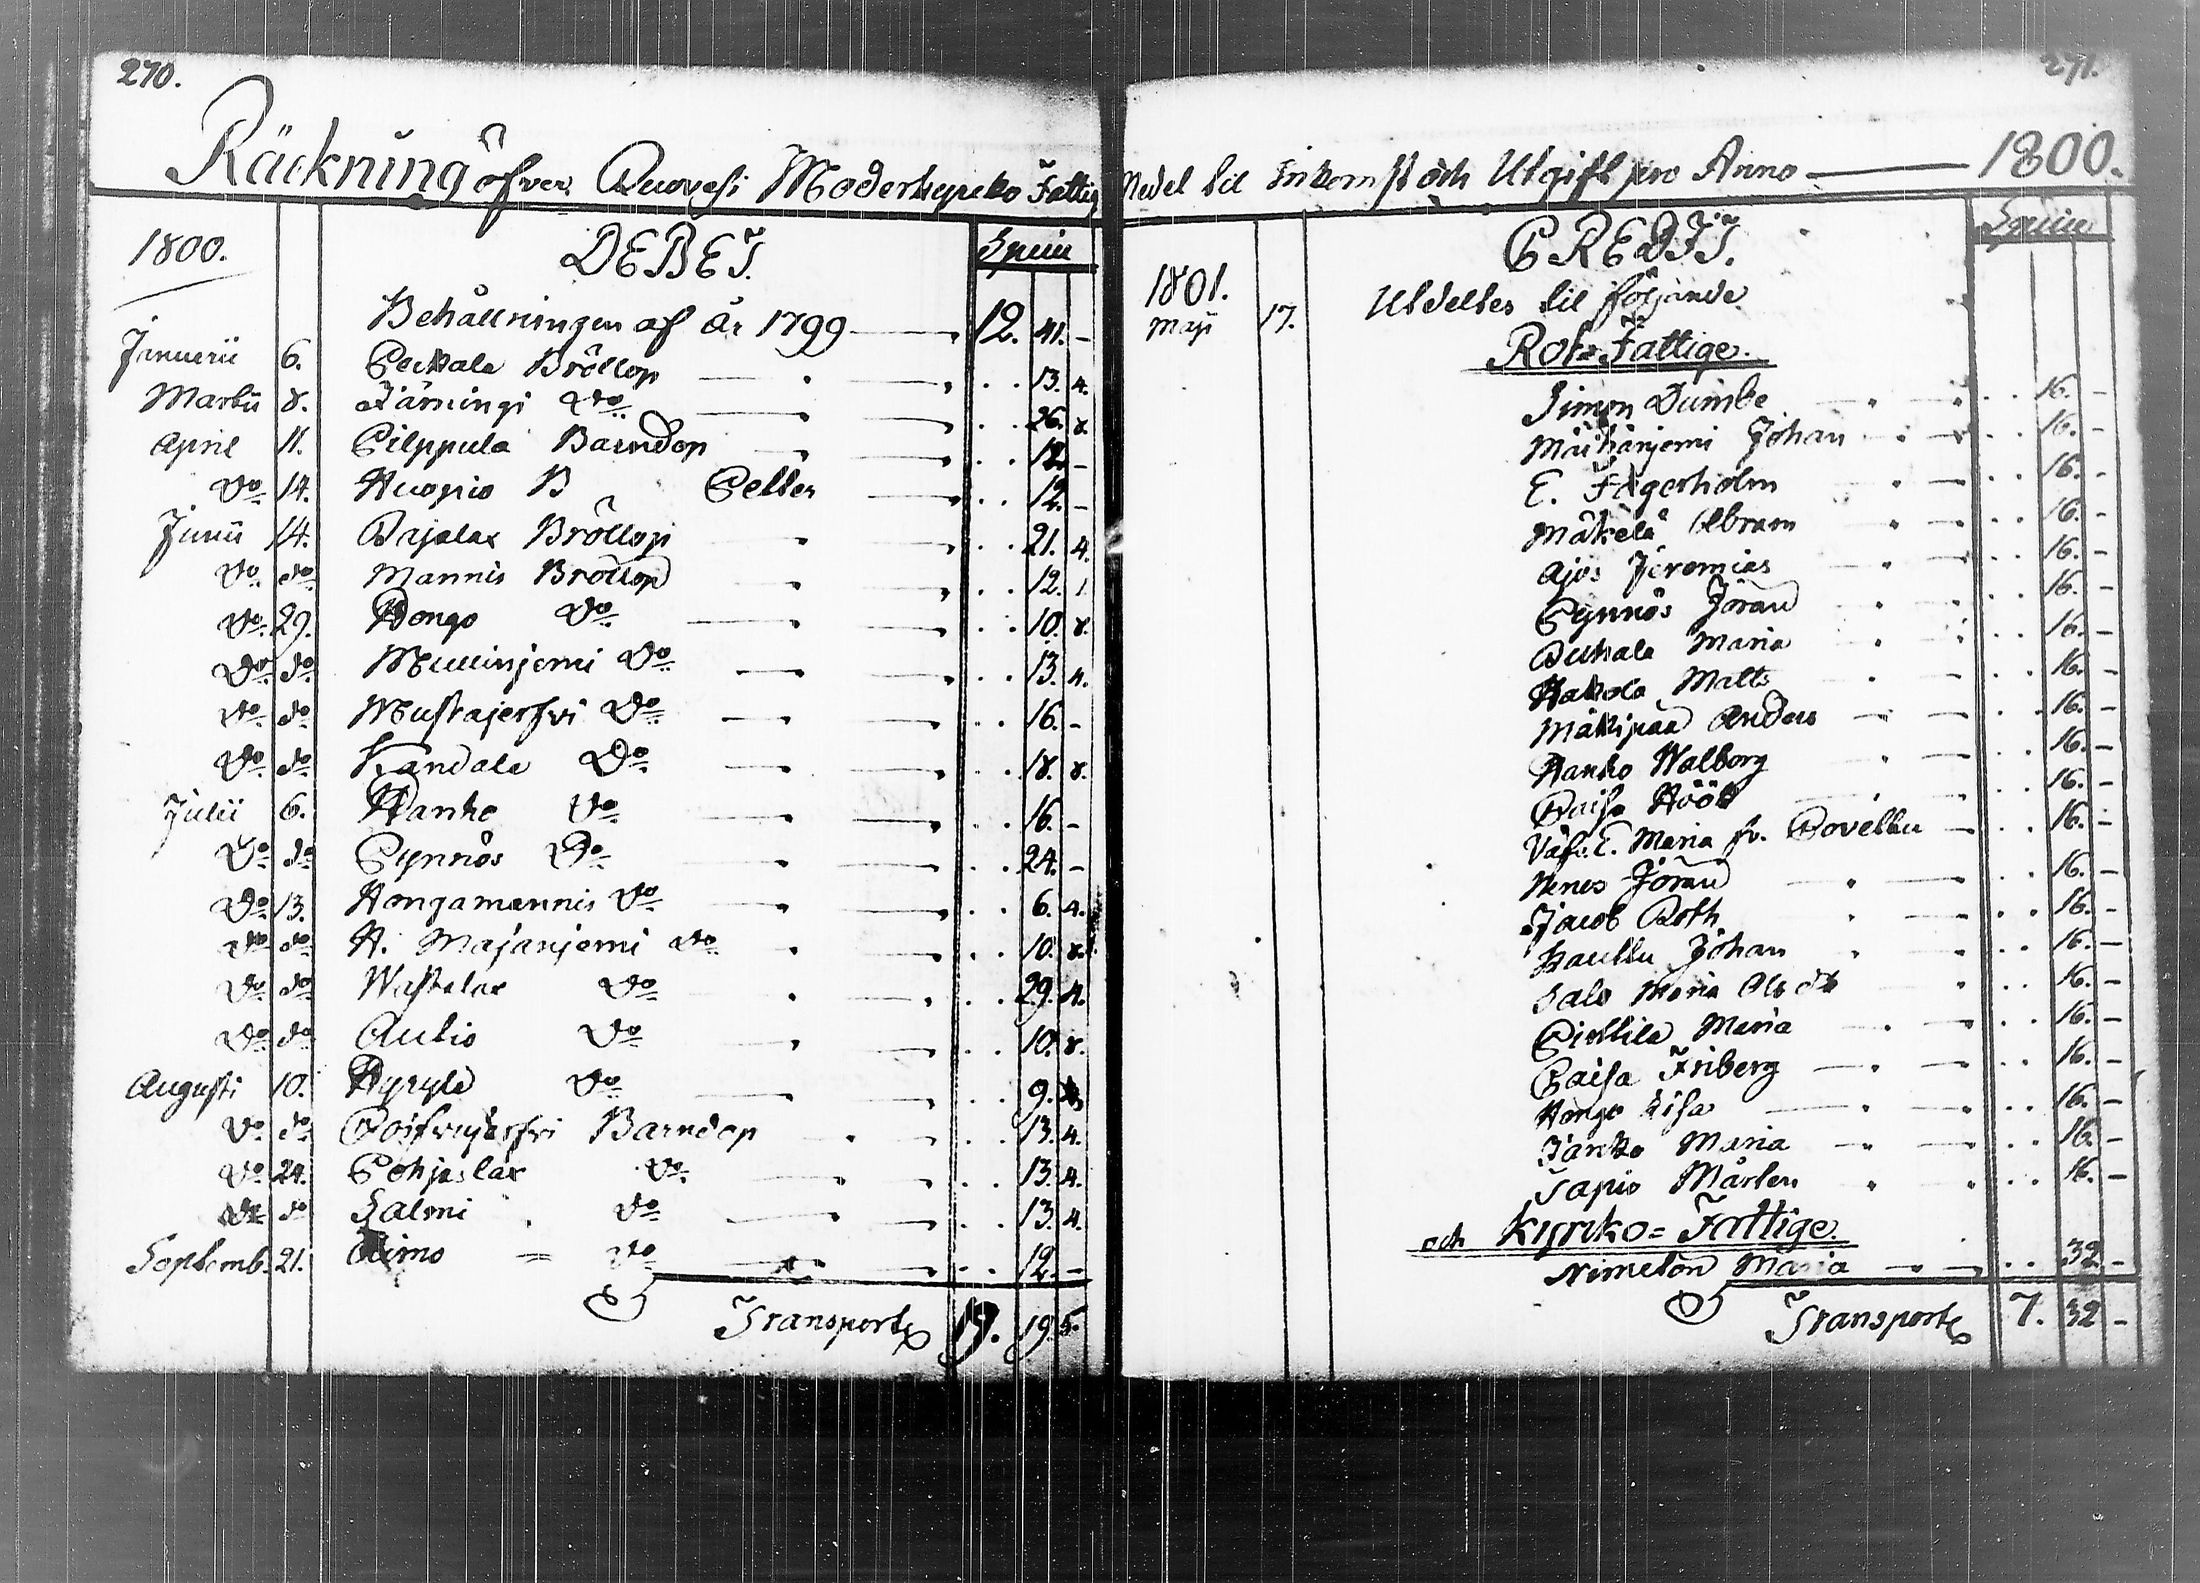 270.
Räckning öfver Ruovesi Moderkyrko Fattig
1800.
DEBET.
Specie
Behållningen af år 1799 12. 41. -
Januarii 6. Peckala Bröllop 13. 4.
Martii 8. Järningi Do 26. 8.
April 11. Pilppula Barndop 12. -
Do 14. Kuopio B Petter 12. -
Junii 14. Rajalax Bröllop 21. 4.
Do do Mannis Bröllop 12. 1.
Do 29. Hongo Do 10. 8.
Do do Mullinjemi Do 13. 4.
Do do Mustajerfvi Do 16. -
Do do Kandala Do 18. 8.
Julii 6. Hanho Do 16. -
Do do Pynnös Do 24. -
Do 13. Hongamannis Do 6. 4.
Do do H. Majanjemi Do 10. 8.
Do do Wastalax Do 29. 4.
Do do Autio Do 10. 8.
Augusti 10. Hyrylä Do 9.
Do do Barndop 13. 4.
Do 24. Pohjaslax Do 13. 4.
Do do Salmi Do 13. 4.
Septemb. 21. Aimo = Do 12. -
Transport 19. 19. 5.
271.
Medel til Inkomst och Utgift pro Anno 1800.
CREDIT.
Specie
1801.
Maji 17. Utdeltes til följande
Rot=Fattige.
Simon Dumbe 16. -
Johan 16. -
E. Fagerholm 16. -
Mäkelä Abram 16. -
Ajos Jeremias 16. -
Pynnös Jöran 16. -
Maria 16. -
Hakola Matts 16. -
Mäkipää Anders 16. -
Hanho Walborg 16. -
Caisa Höök 16. -
E. Maria fr. 16. -
Nenes Jöran 16. -
Jacob Roth 16. -
Kauttu Johan 16. -
Salo Maria 16. -
Pirttilä Maria 16. -
Caisa Friberg 16. -
Hongo Lisa 16. -
Maria 16. -
Tapio Mårten 16. -
och Kyrko=Fattige.
Nimetön Maria 32. -
Transport 7. 32 -